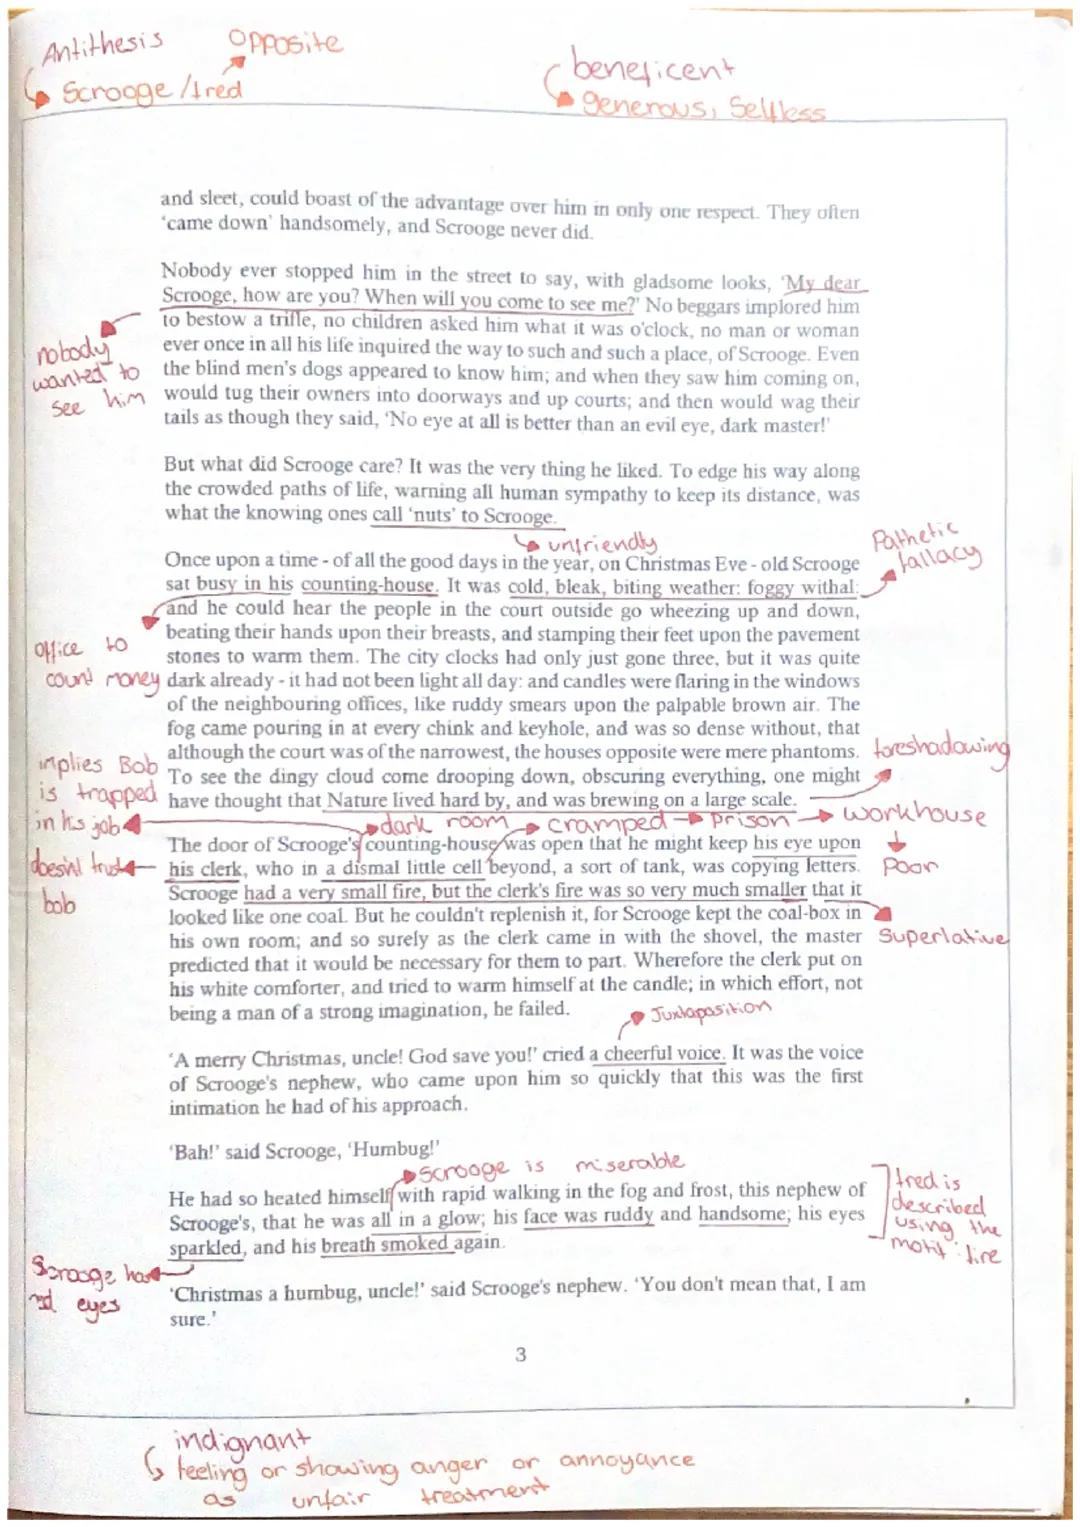 Antithesis
Opposite
Scrooge / fred
beneficent
generous, Selfless
and sleet, could boast of the advantage over him in only one respect. They often
'came down' handsomely, and Scrooge never did.
Nobody ever stopped him in the street to say, with gladsome looks, 'My dear
Scrooge, how are you? When will you come to see me?' No beggars implored him
to bestow a trifle, no children asked him what it was o'clock, no man or woman
ever once in all his life inquired the way to such and such a place, of Scrooge. Even
the blind men's dogs appeared to know him; and when they saw him coming on,
would tug their owners into doorways and up courts; and then would wag their
tails as though they said, 'No eye at all is better than an evil eye, dark master!'
nobody
wanted to
see him
But what did Scrooge care? It was the very thing he liked. To edge his way along
the crowded paths of life, warning all human sympathy to keep its distance, was
what the knowing ones call 'nuts' to Scrooge.
unfriendly
Pathetic
fallacy
Once upon a time - of all the good days in the year, on Christmas Eve - old Scrooge
sat busy in his counting-house. It was cold, bleak, biting weather: foggy withal:
and he could hear the people in the court outside go wheezing up and down,
beating their hands upon their breasts, and stamping their feet upon the pavement
stones to warm them. The city clocks had only just gone three, but it was quite
dark already - it had not been light all day: and candles were flaring in the windows
of the neighbouring offices, like ruddy smears upon the palpable brown air. The
fog came pouring in at every chink and keyhole, and was so dense without, that
although the court was of the narrowest, the houses opposite were mere phantoms.
To see the dingy cloud come drooping down, obscuring everything, one might
have thought that Nature lived hard by, and was brewing on a large scale.
office to
count money
foreshadowing
implies Bob
is trapped
in his job
dark room
cramped
prison
workhouse
Poor
The door of Scrooge's counting-house was open that he might keep his eye upon
his clerk, who in a dismal little cell beyond, a sort of tank, was copying letters.
Scrooge had a very small fire, but the clerk's fire was so very much smaller that it
looked like one coal. But he couldn't replenish it, for Scrooge kept the coal-box in
his own room; and so surely as the clerk came in with the shovel, the master
predicted that it would be necessary for them to part. Wherefore the clerk put on
his white comforter, and tried to warm himself at the candle; in which effort, not
being a man of a strong imagination, he failed.
doesn't trust
bob
Superlative
Juxtaposition
'A merry Christmas, uncle! God save you!' cried a cheerful voice. It was the voice
of Scrooge's nephew, who came upon him so quickly that this was the first
intimation he had of his approach.
'Bah!' said Scrooge, 'Humbug!'
Scrooge is miserable
He had so heated himself with rapid walking in the fog and frost, this nephew of
Scrooge's, that he was all in a glow; his face was ruddy and handsome; his eyes
sparkled, and his breath smoked again.
fred is
described
using the
motif: fire
Scrooge has
eyes
'Christmas a humbug, uncle!' said Scrooge's nephew. 'You don't mean that, I am
sure.'
3
indignant
feeling or showing anger or annoyance
as unfair treatment